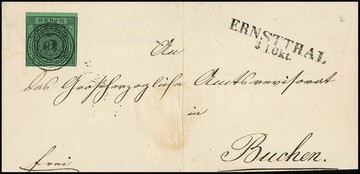 BADEN
ERNSTTHAL
31 Okt.
An
das Großherzogliche Amtsrevisorat
in
Buchen.
frei